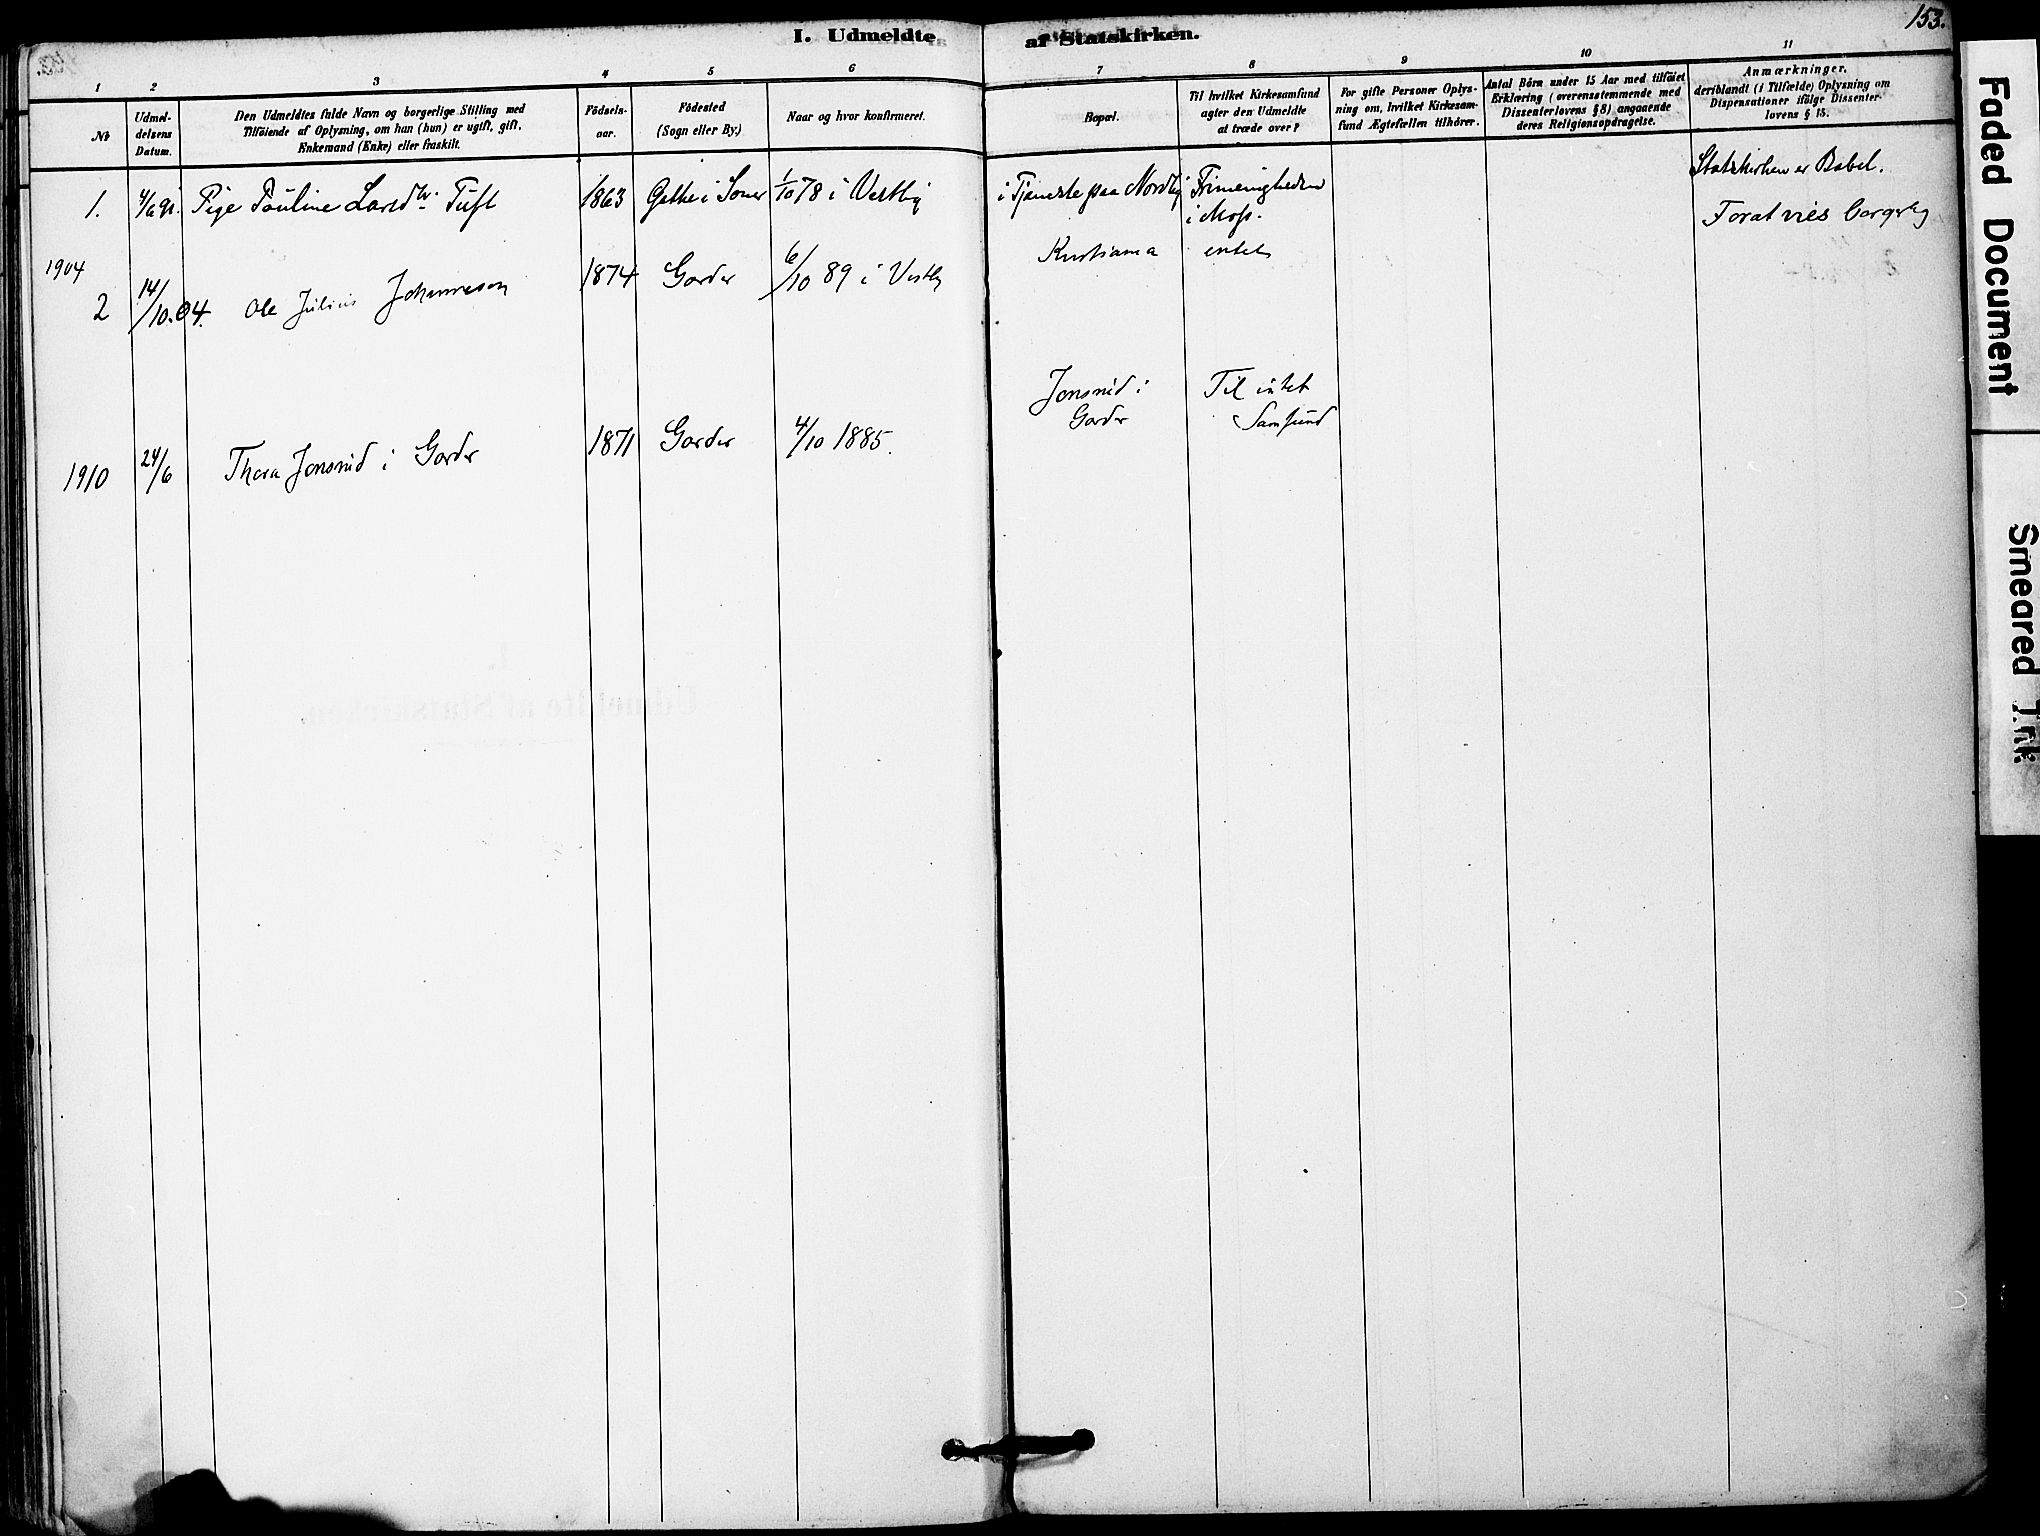 I. Udmeldte af Statskirken.
153.
1 2 3 4 5 6 7 8 9 10 11
No
Udmel-
delsens
Datum.
Den Udmeldtes fulde Navn og borgerlige Stilling med
Tilföiende af Oplysning, om han (hun) er ugift, gift,
Enkemand (Enke) eller fraskilt.
Födsels-
aar.
Födested
(Sogn eller By.)
Naar og hvor konfirmeret.
Bopæl.
Til hvilket Kirkesamfund
agter den Udmeldte
at træde over?
For gifte Personer Oplys-
ning om, hvilket Kirkesam-
fund Ægtefællen tilhörer.
Antal Börn under 15 Aar med tilföiet
Erklæring (overensstemmende med
Dissenterlovens § 8) angaaende
deres Religionsopdragelse.
Anmærkninger,
deriblandt (i Tilfælde) Oplysning om
Dispensationer ifölge Dissenter-
lovens § 15.
1. 4/6 91. Pige Pauline Larsdtr. Tuft 1863 i Soner 1/10 78 i Vestby i Tjeneste paa Nordby Frimenigheden
i Moss.
Statskirken er Babel.
1904
2 14/10.04. Ole Julius Johannesen 1874 Garder 6/10 89 i Vestby Kristiania intet
1910 24/6 Thora Jonsrud i Garder 1871 Garder 4/10 1885. Jonsrud i
Garder
Til intet
Samfund
Faded Document
Smeared Ink.